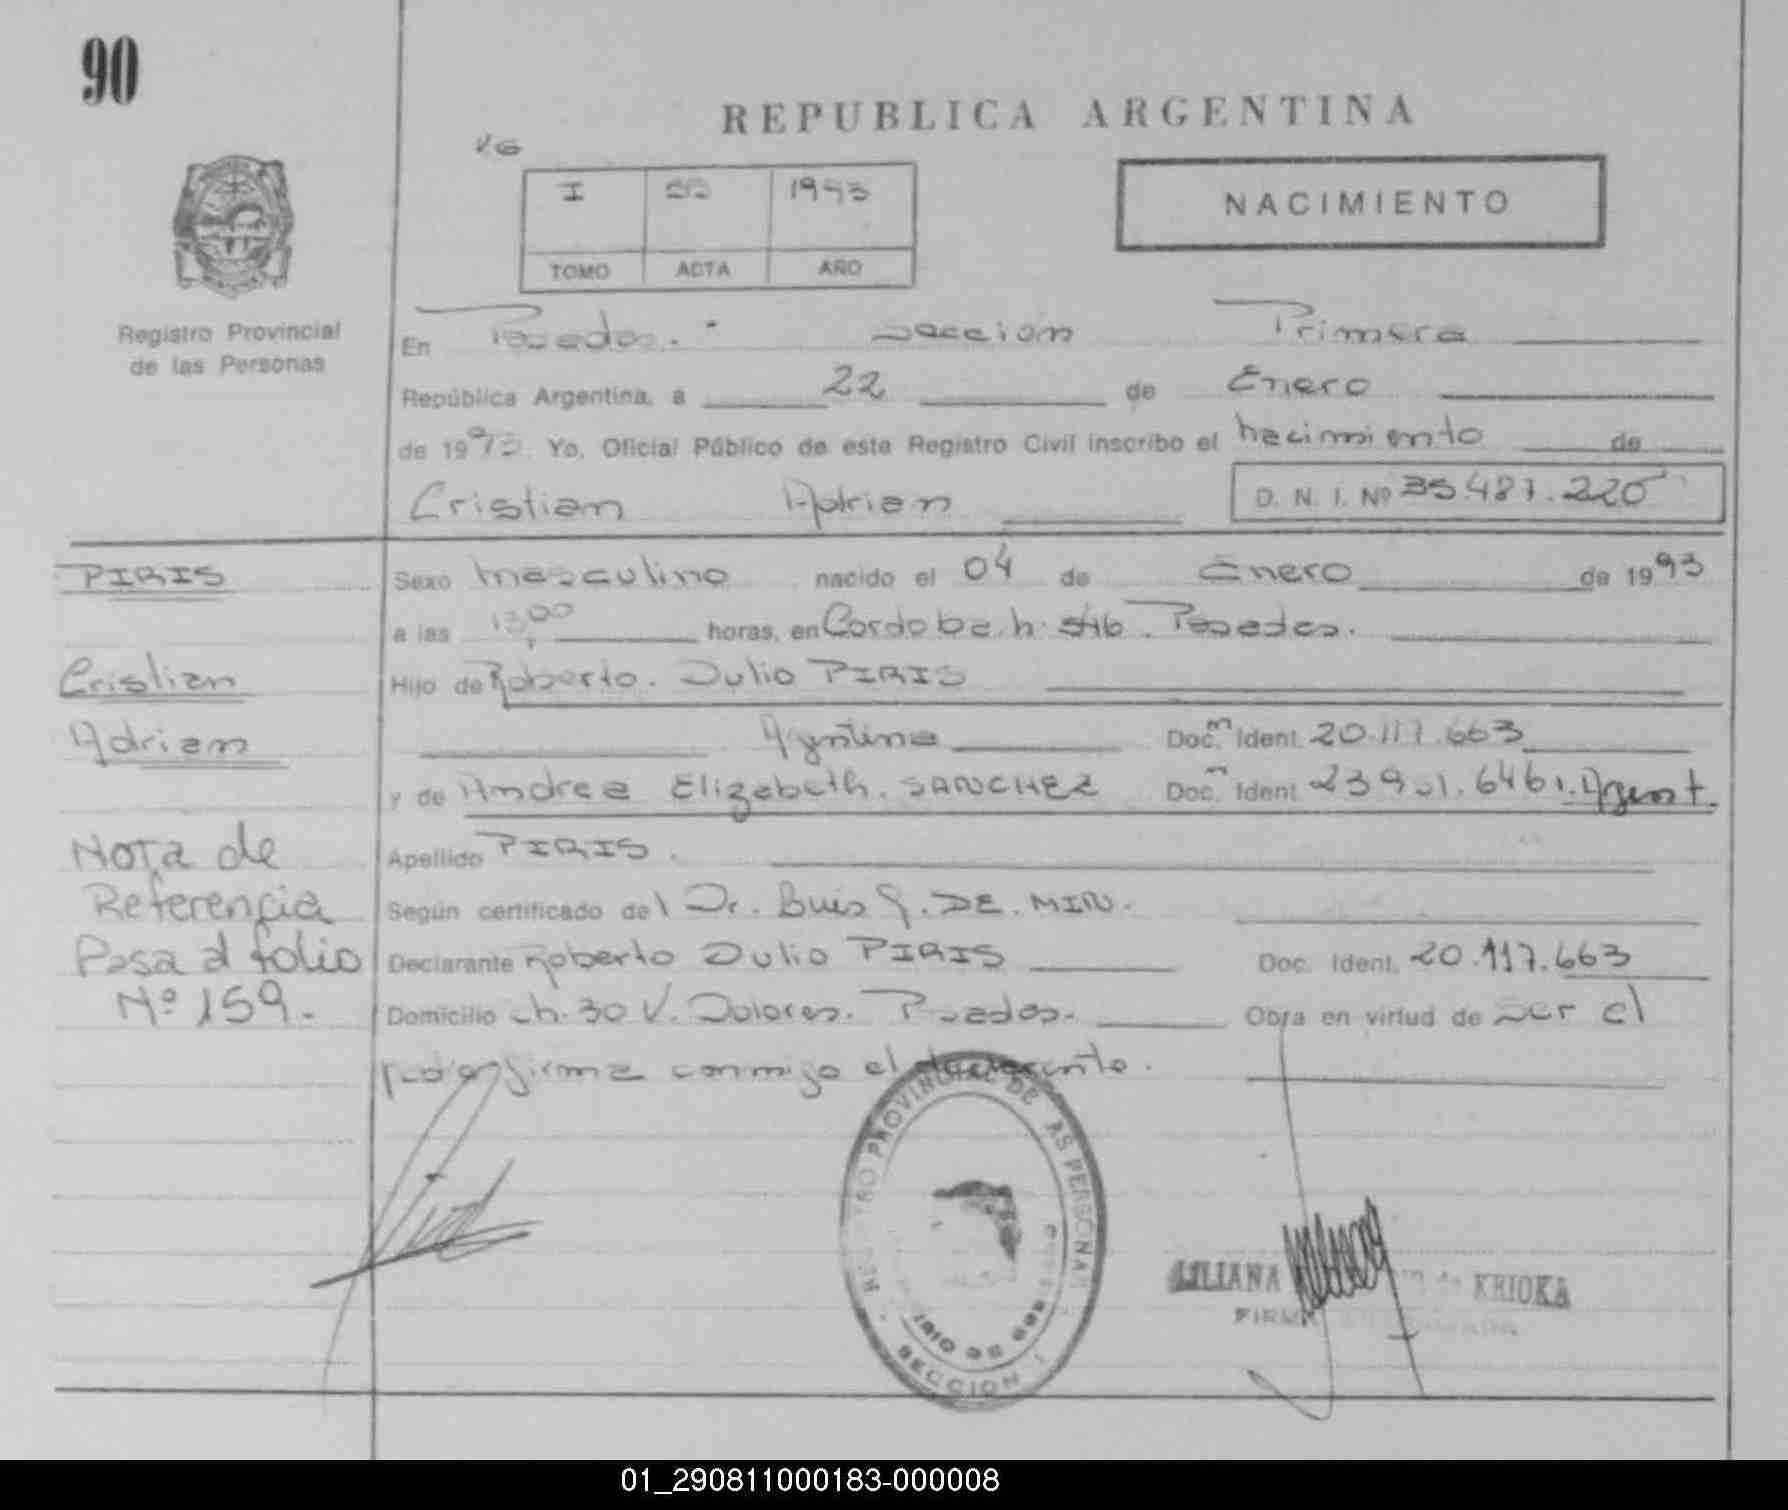 90
REPUBLICA ARGENTINA
VG
I 1993
NACIMIENTO
TOMO ACTA AÑO
Registro Provincial
de las Personas
En Posadas.- Seccion Primera
República Argentina, a 22 de Enero
de 1993 Yo, Oficial Público de este Registro Civil inscribo el nacimiento de
Cristian Adrian D. N. I. Nº 35.487.220
PIRIS
Sexo masculino nacido el 04 de Enero de 1993
a las 13,00 horas, en Cordoba. h. 546. Posadas.
Cristian
Hijo de Roberto. Julio PIRIS
Adrian
Argentina Doc.m Ident. 20.117.663
y de Andrea Elizabeth. SANCHEZ Doc.m Ident 23.901.646. Argent.
Nota de
Apellido PIRIS.
Referencia
Según certificado del Dr. Luis DE. MIN.
Pasa al folio
Declarante Roberto Julio PIRIS Doc. Ident. 20.117.663
Nº 159.
Domicilio ch. 30 V. Dolores. Posadas. Obra en virtud de ser el
padre firma conmigo el declarante.
REGISTRO PROVINCIAL DE LAS PERSONAS
SECCION 1
LILIANA de KRIOKA
FIRMA
01_290811000183-000008